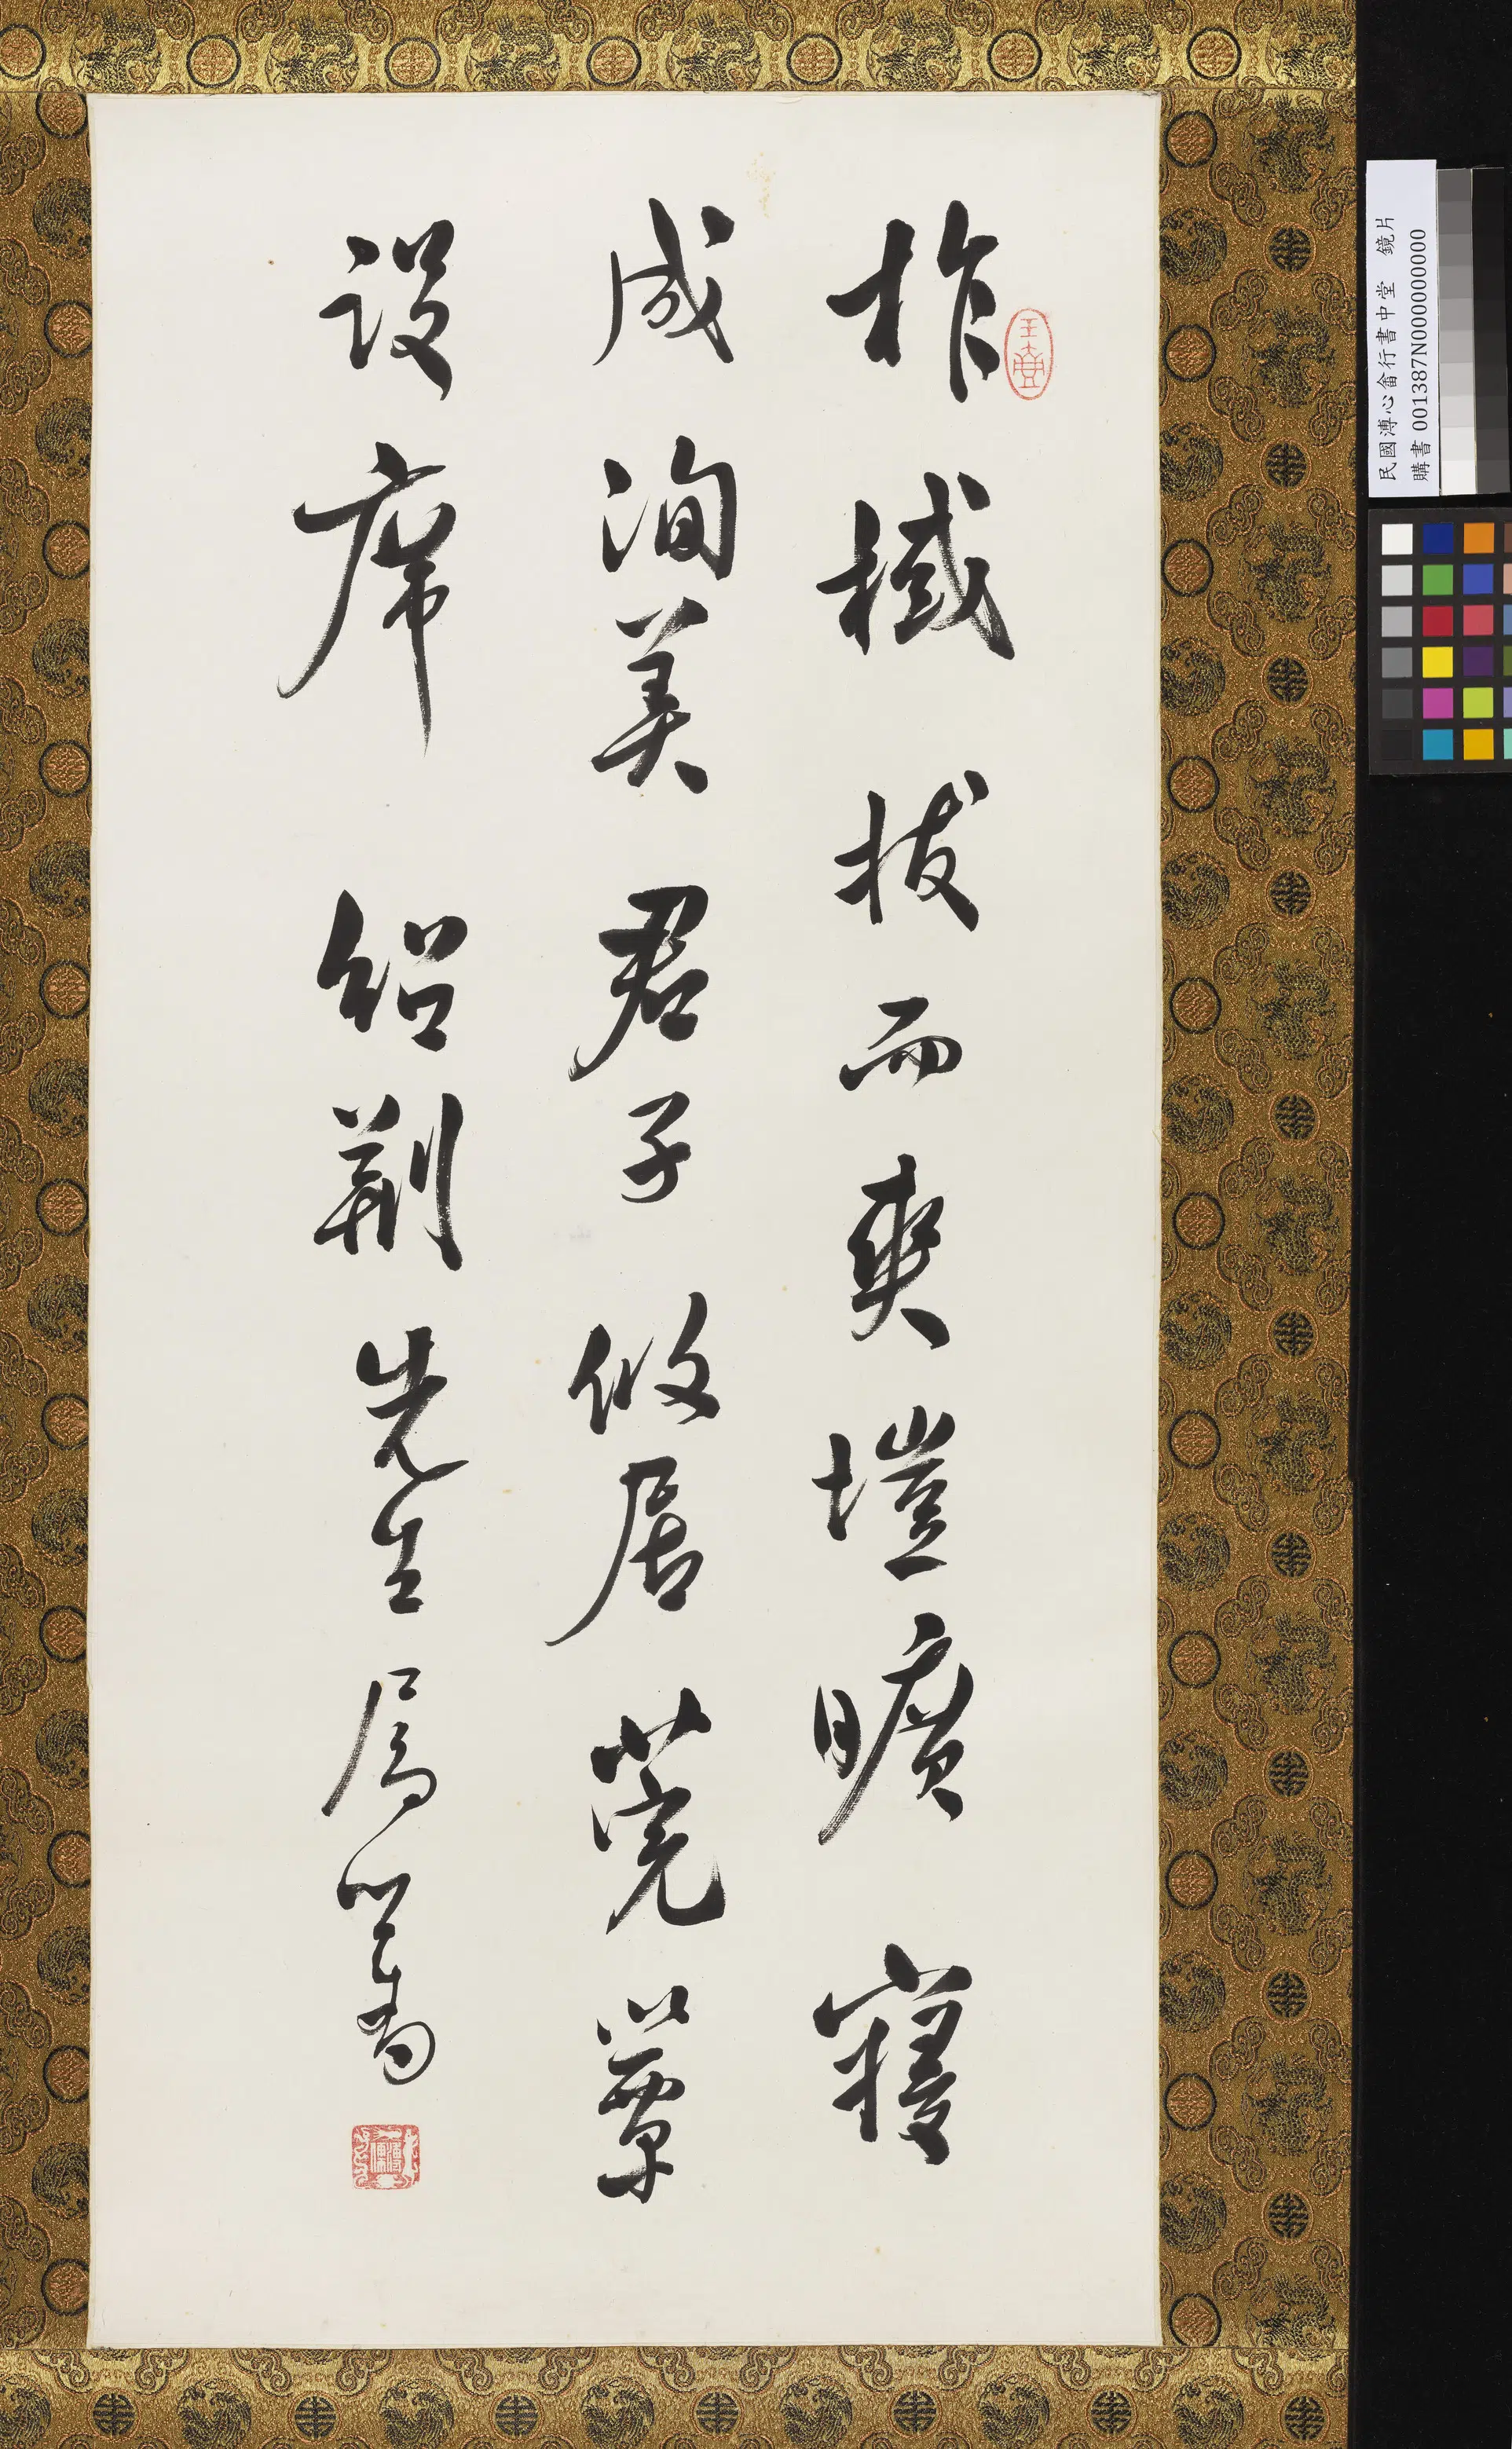 柞棫拔而爽塏曠寢
成洵美君子攸居莞簟
設席 紹荊先生屬 心畬
民國溥心畬行書中堂 鏡片
購書 001387N000000000